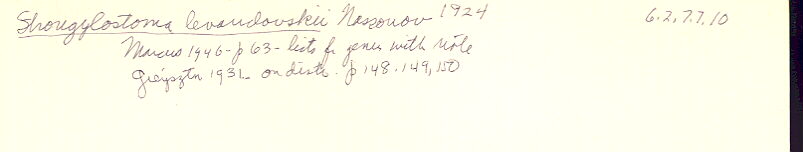 Strongylostoma levandovskii Nassonov 1924 6.2, 7.7, 10
Marcus 1946 - p 63 - lists for genus with note
Gieysztor 1931 - on distr. p 148.149, 150